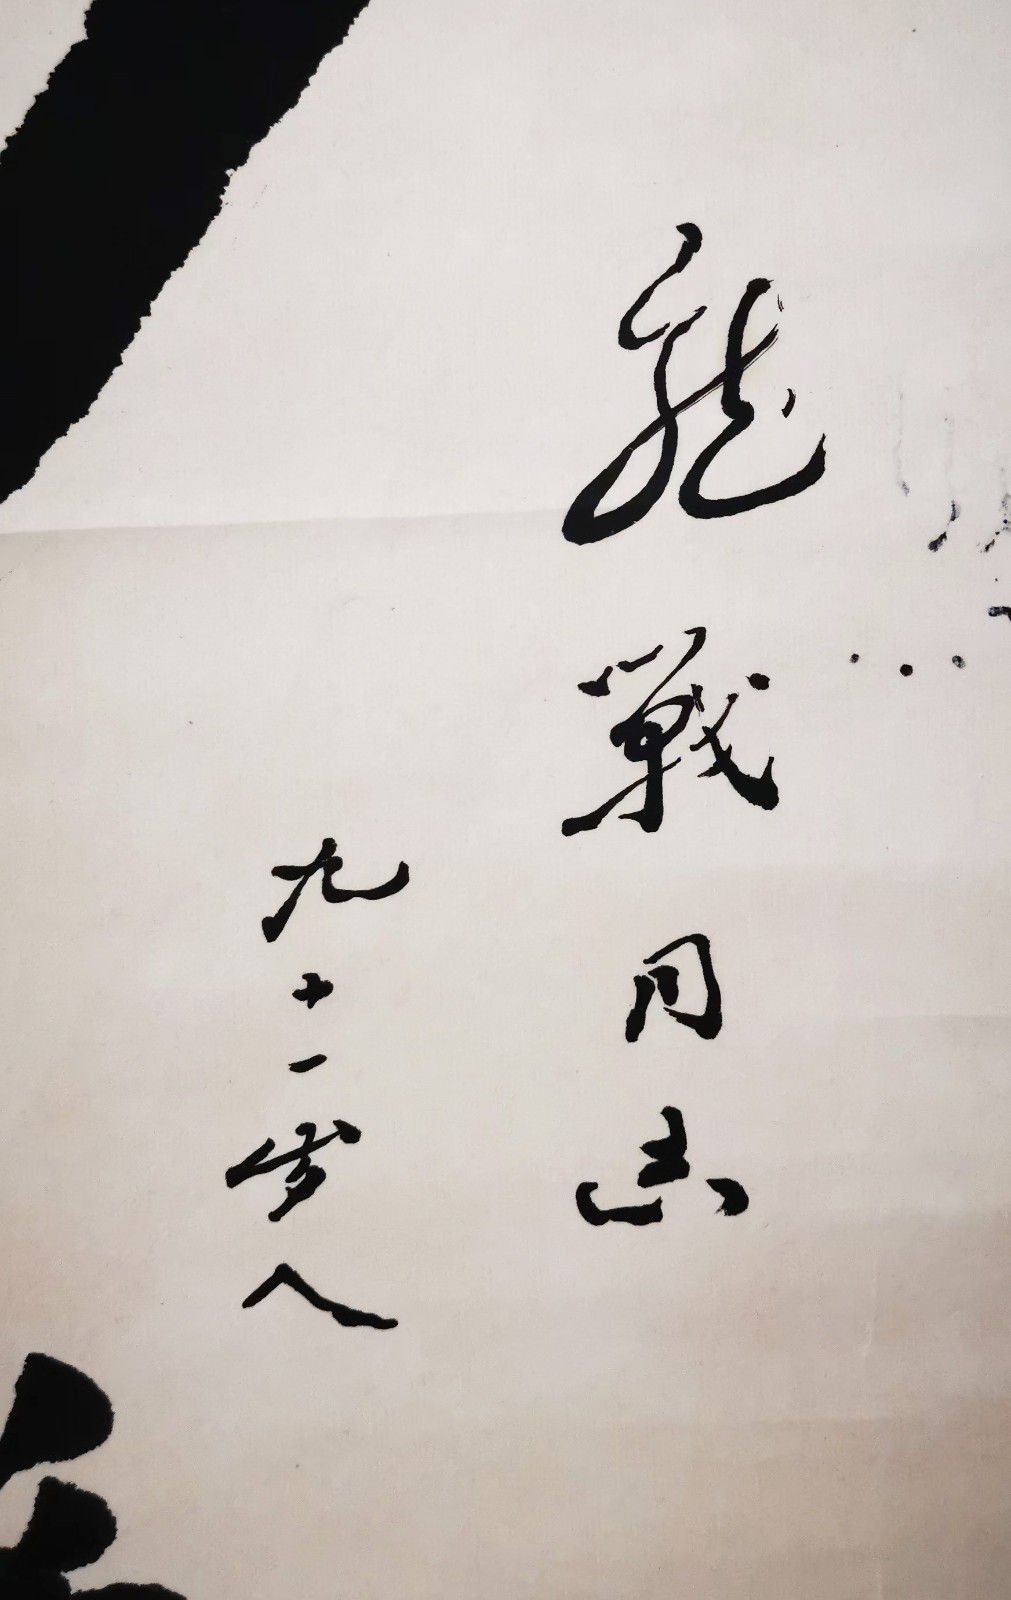 龍戰同志
九十一岁人